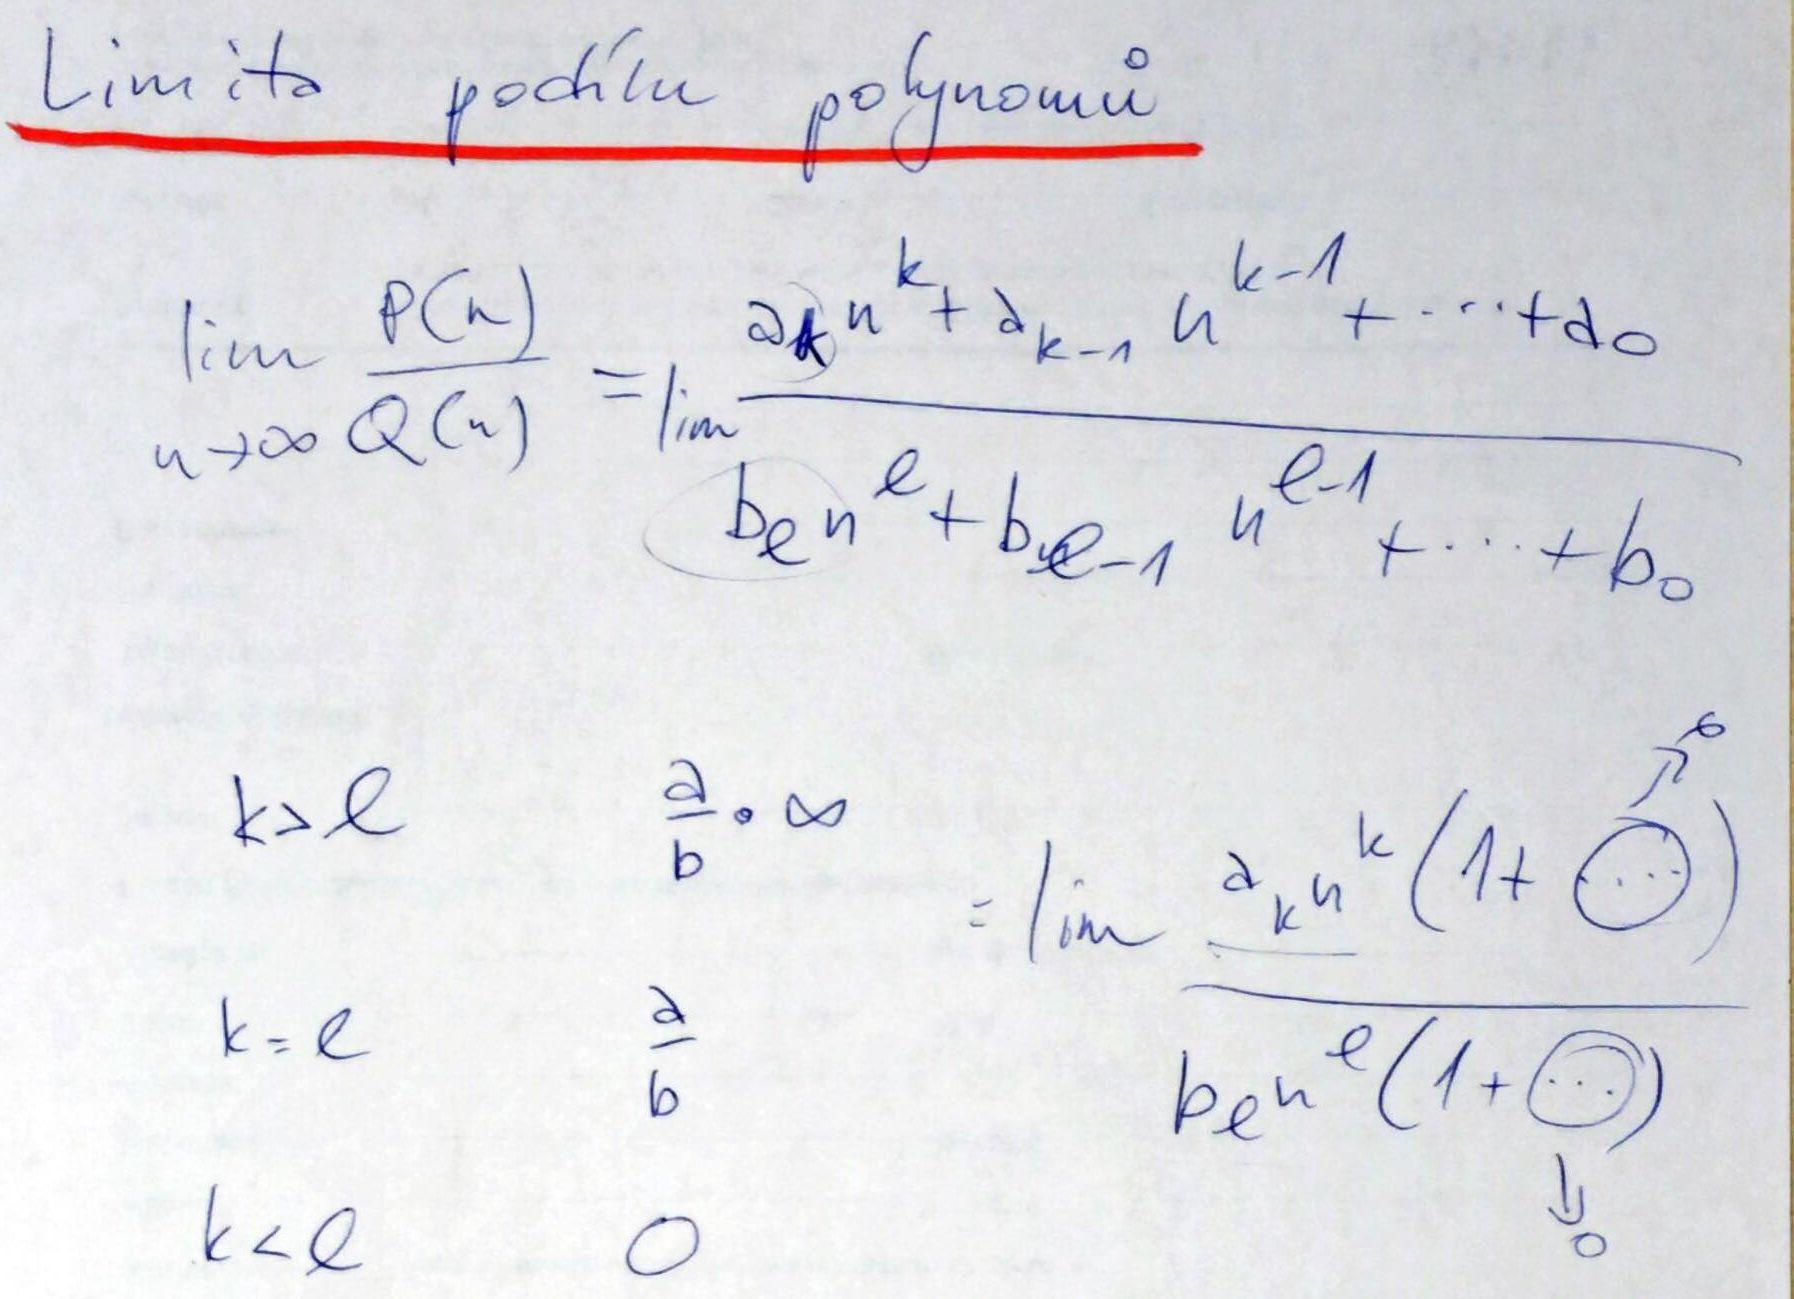 Limita podílu polynomů
lim n→∞ P(n)/Q(n) = lim (a_k n^k + a_{k-1} n^{k-1} + ... + a_0)/(b_l n^l + b_{l-1} n^{l-1} + ... + b_0)
k>l a/b · ∞
= lim (a_k n^k (1+ ...))/(b_l n^l (1+ ...)) → 0 → 0
k=l a/b
k<l 0